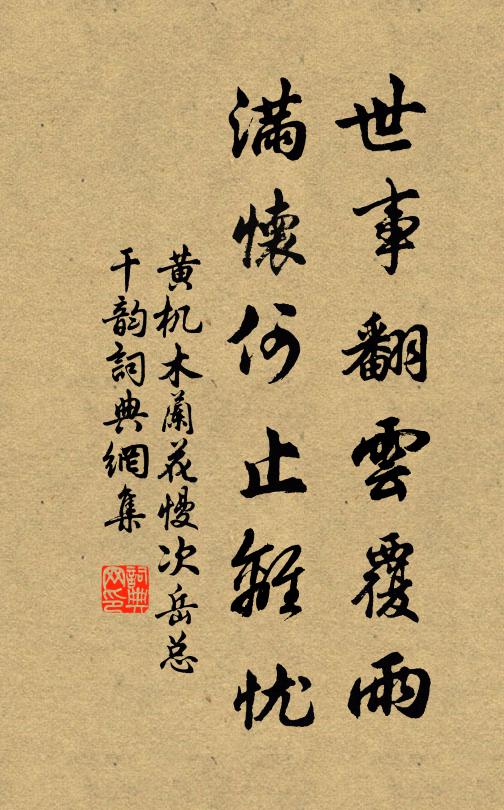 世事翻雲覆雨
滿懷何止離忧
黄机木蘭花慢次岳总
干韵詞典網集
詞典
网印